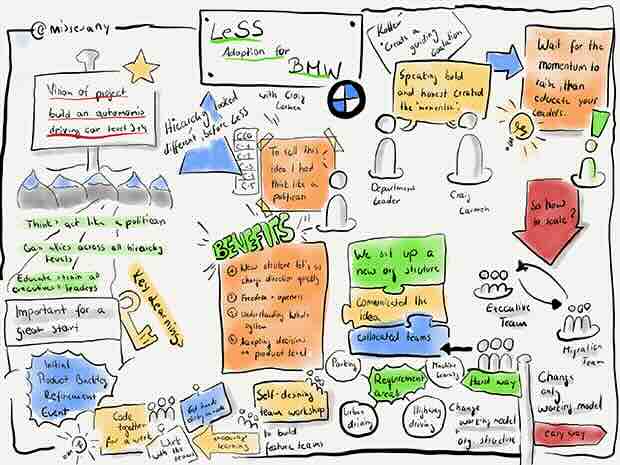 @missevany
LeSS
Adoption for
BMW
with Craig
Larman
Kotter
"Create a
guiding
coalition
Wait for the
momentum to
raise, than
educate your
Leaders.
Speaking bold
and honest created
the "momentum".
Vision of project
build an autonomous
driving car level
Hierarchy looked
different before LeSS
CEO
C-1
C-5
To sell this
idea I had
think like a
politican
Department
Leader
Craig
Larman
So how
to scale?
Think + act like a politican
Gain allies across all hierarchy
levels
Educate
executives + leaders
Important for a
great start
Key Learnings
BENEFITS
New structure let's us
change direction quickly
Freedom + openness
Understanding whole
system
Keeping decisions
on product level
We set up a
new org structure
Communicated the
idea
collocated teams
Executive
Team
Migration
Team
Initial
Product Backlog
Refinement
Event
Code
together
for a week
Work
with the
Self-desining
team workshop
to build
feature teams
encourage
learning
Parking
Urban
driving
Requirement
areas
Machine
Learning
Highway
driving
Hard way
Change
working model
org. structure
Change
only
working model
easy way